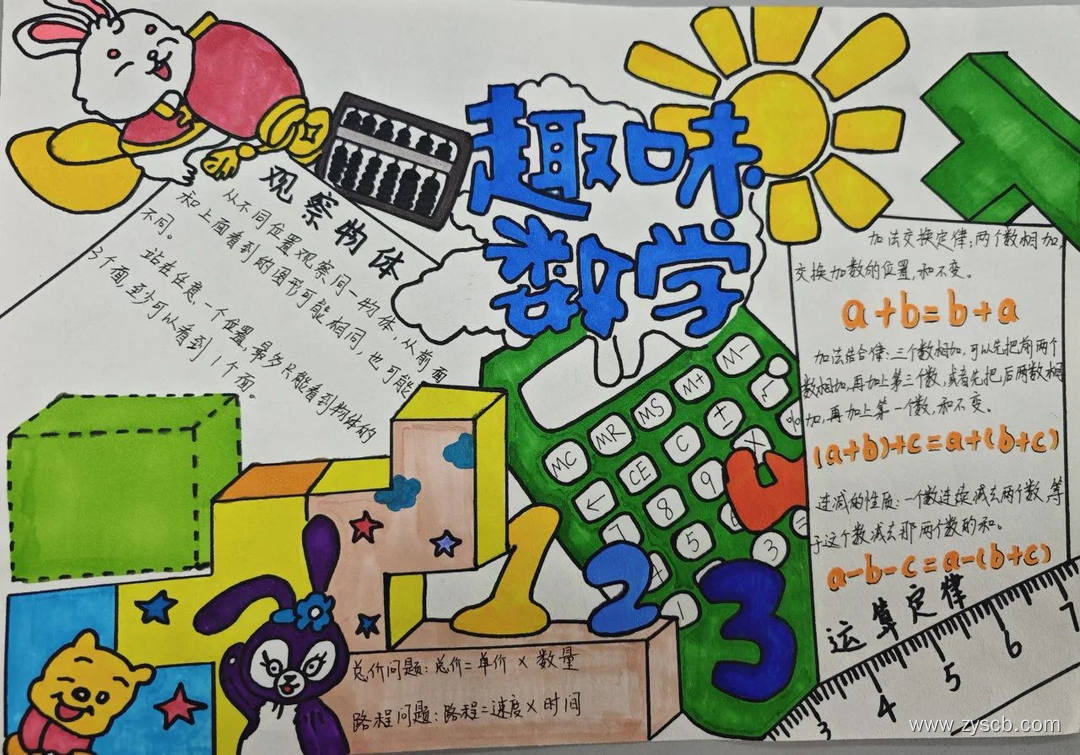 趣味
数学
观察物体
从不同位置观察同一物体，从前面
和上面看到的图形可能相同，也可能
不同。
站在任意一个位置，最多只能看到物体的
3个面，至少可以看到1个面。
加法交换定律：两个数相加，
交换加数的位置，和不变。
a+b=b+a
加法结合律：三个数相加，可以先把前两个
数相加，再加上第三个数，或者先把后两数相
加，再加上第一个数，和不变。
(a+b)+c=a+(b+c)
连减的性质：一个数连续减去两个数，等
于这个数减去那两个数的和。
a-b-c=a-(b+c)
运算定律
MC MR MS M+ M-
← CE C ±
7 8 9
4 5
1 3 =
1 2 3
总价问题：总价=单价×数量
路程问题：路程=速度×时间
3 4 5 6 7
www.zyscb.com